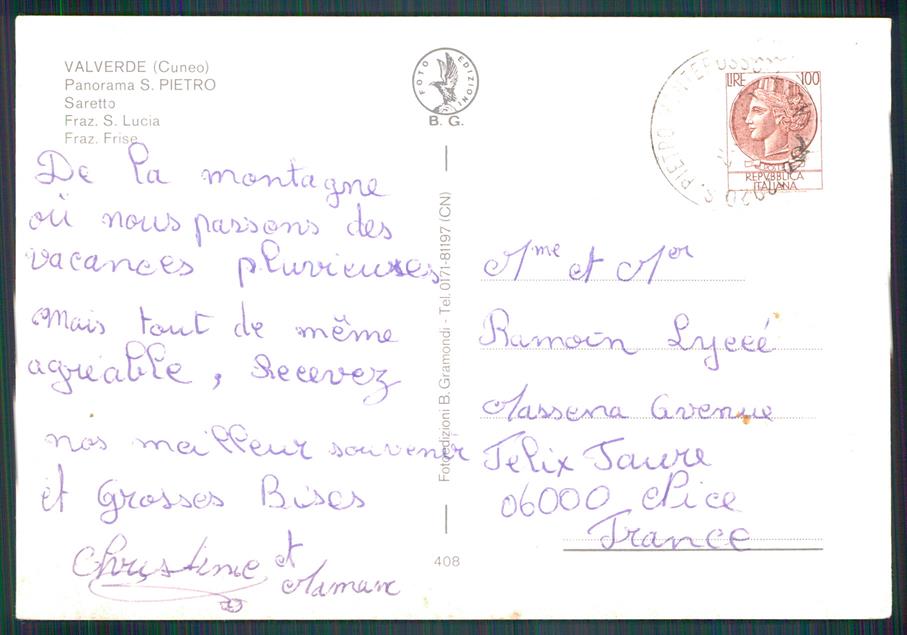 VALVERDE (Cuneo)
Panorama S. PIETRO
Saretto
Fraz. S. Lucia
Fraz. Frise
De la montagne
où nous passons des
vacances pluvieuses
Mais tout de même
agréable, Recevez
nos meilleur souvenir
et Grosses Bises
Christine et
Maman
FOTO EDIZIONI
B. G.
Fotoedizioni B. Gramondi - Tel. 0171-81197 (CN)
408
LIRE 100
POSTE
REPVBBLICA
ITALIANA
S. PIETRO
Mme et Mer
Ramoin Lycée
Massena Avenue
Felix Faure
06000 Nice
France